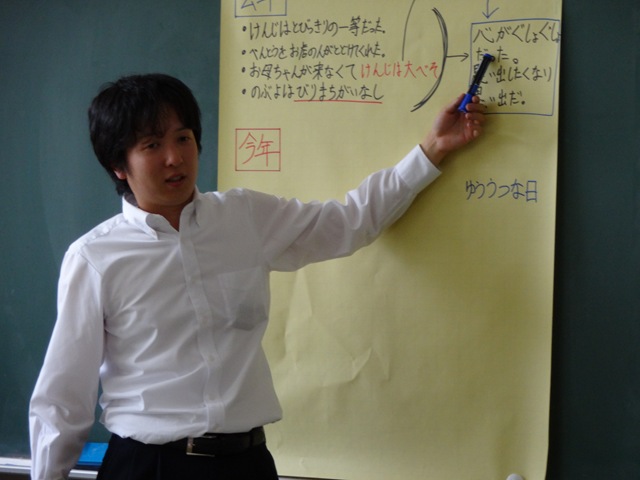 去年
・けんじはとびきりの一等だった。
・べんとうをお店の人がとどけてくれた。
・お母ちゃんが来なくてけんじは大べそ
・のぶよはびりまちがいなし
心がぐしょぐしょ
だった。
い出したくない
い出だ。
今年
ゆううつな日